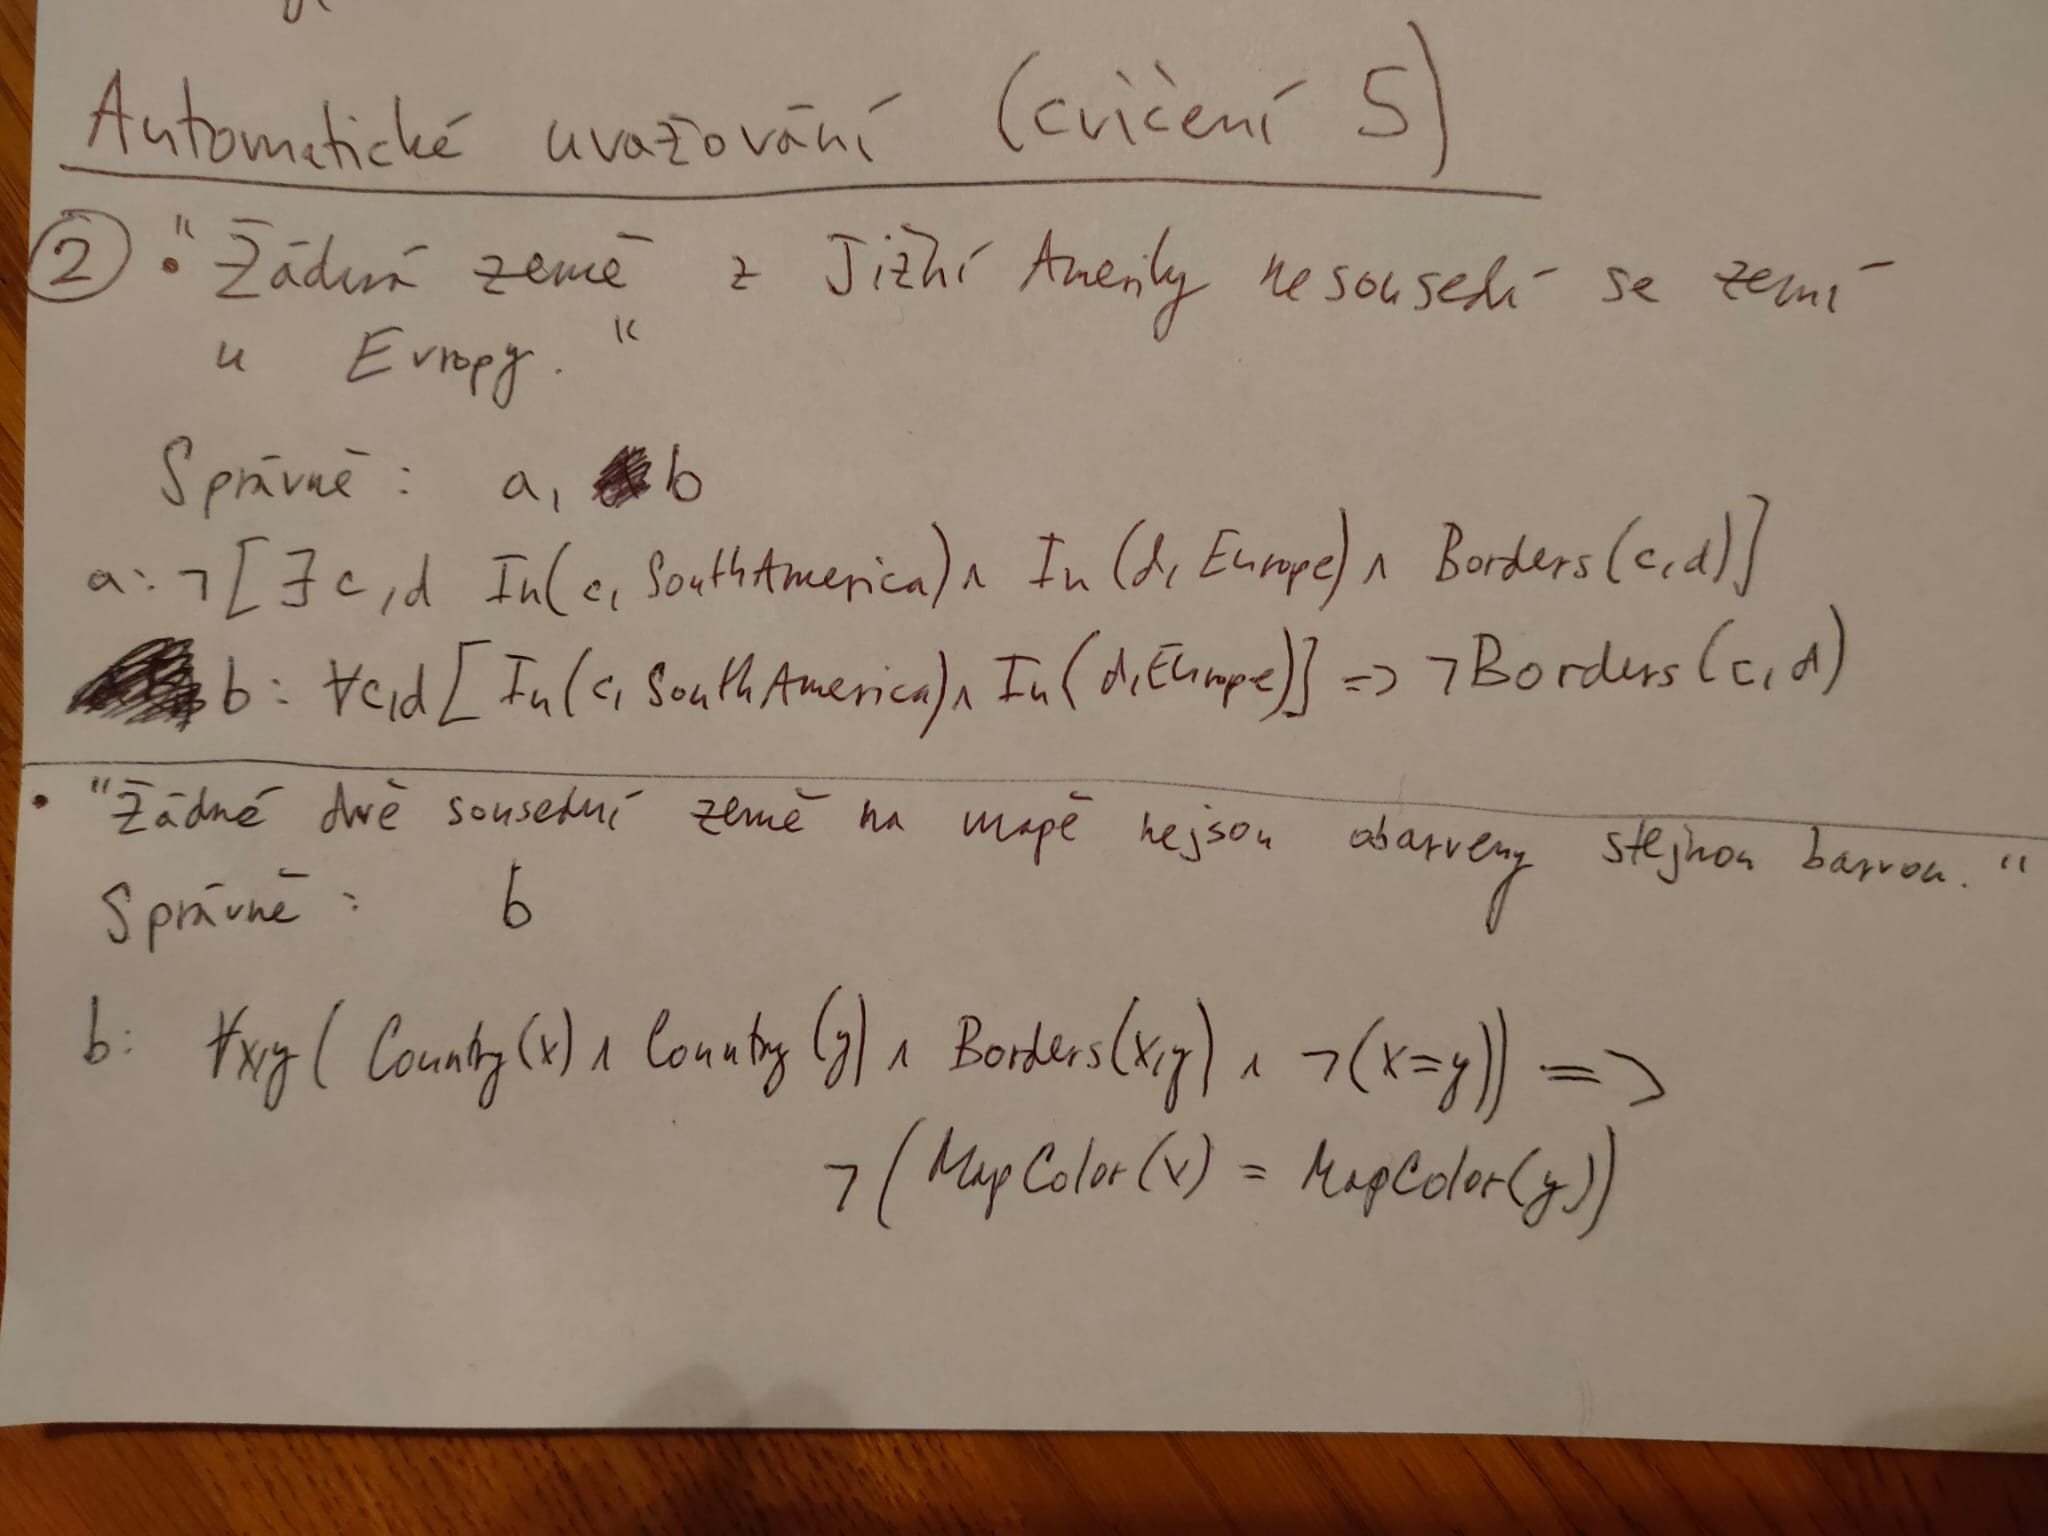 Automatické uvažování (cvičení 5)
② • "Žádná země z Jižní Ameriky nesousedí se zemí
u Evropy."
Správně: a, b
a: ¬[∃c,d In(c, SouthAmerica) ∧ In(d, Europe) ∧ Borders(c,d)]
b: ∀c,d [In(c, SouthAmerica) ∧ In(d, Europe)] => ¬Borders(c,d)
• "Žádné dvě sousední země na mapě nejsou obarveny stejnou barvou."
Správně: b
b: ∀x,y (Country(x) ∧ Country(y) ∧ Borders(x,y) ∧ ¬(x=y)) =>
¬(MapColor(x) = MapColor(y))